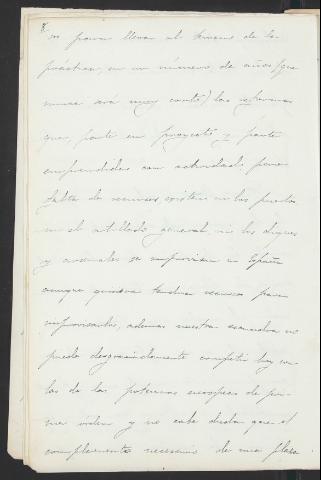 8
para llevar al terreno de la
práctica, en un número de años (que
nunca será muy corto) las reformas
que, parte en proyecto y parte
emprendidas con actividad pero
falta de recursos existen en los puertos
en el artillado general, ni los diques
y arsenales se improvisan en España
aunque quisiera tendria recursos para
improvisarlos, ademas nuestra escuadra no
puede desgraciadamente competir hoy con
las de las potencias europeas de pri-
mer orden y no cabe duda que el
complemento necesario de una plaza